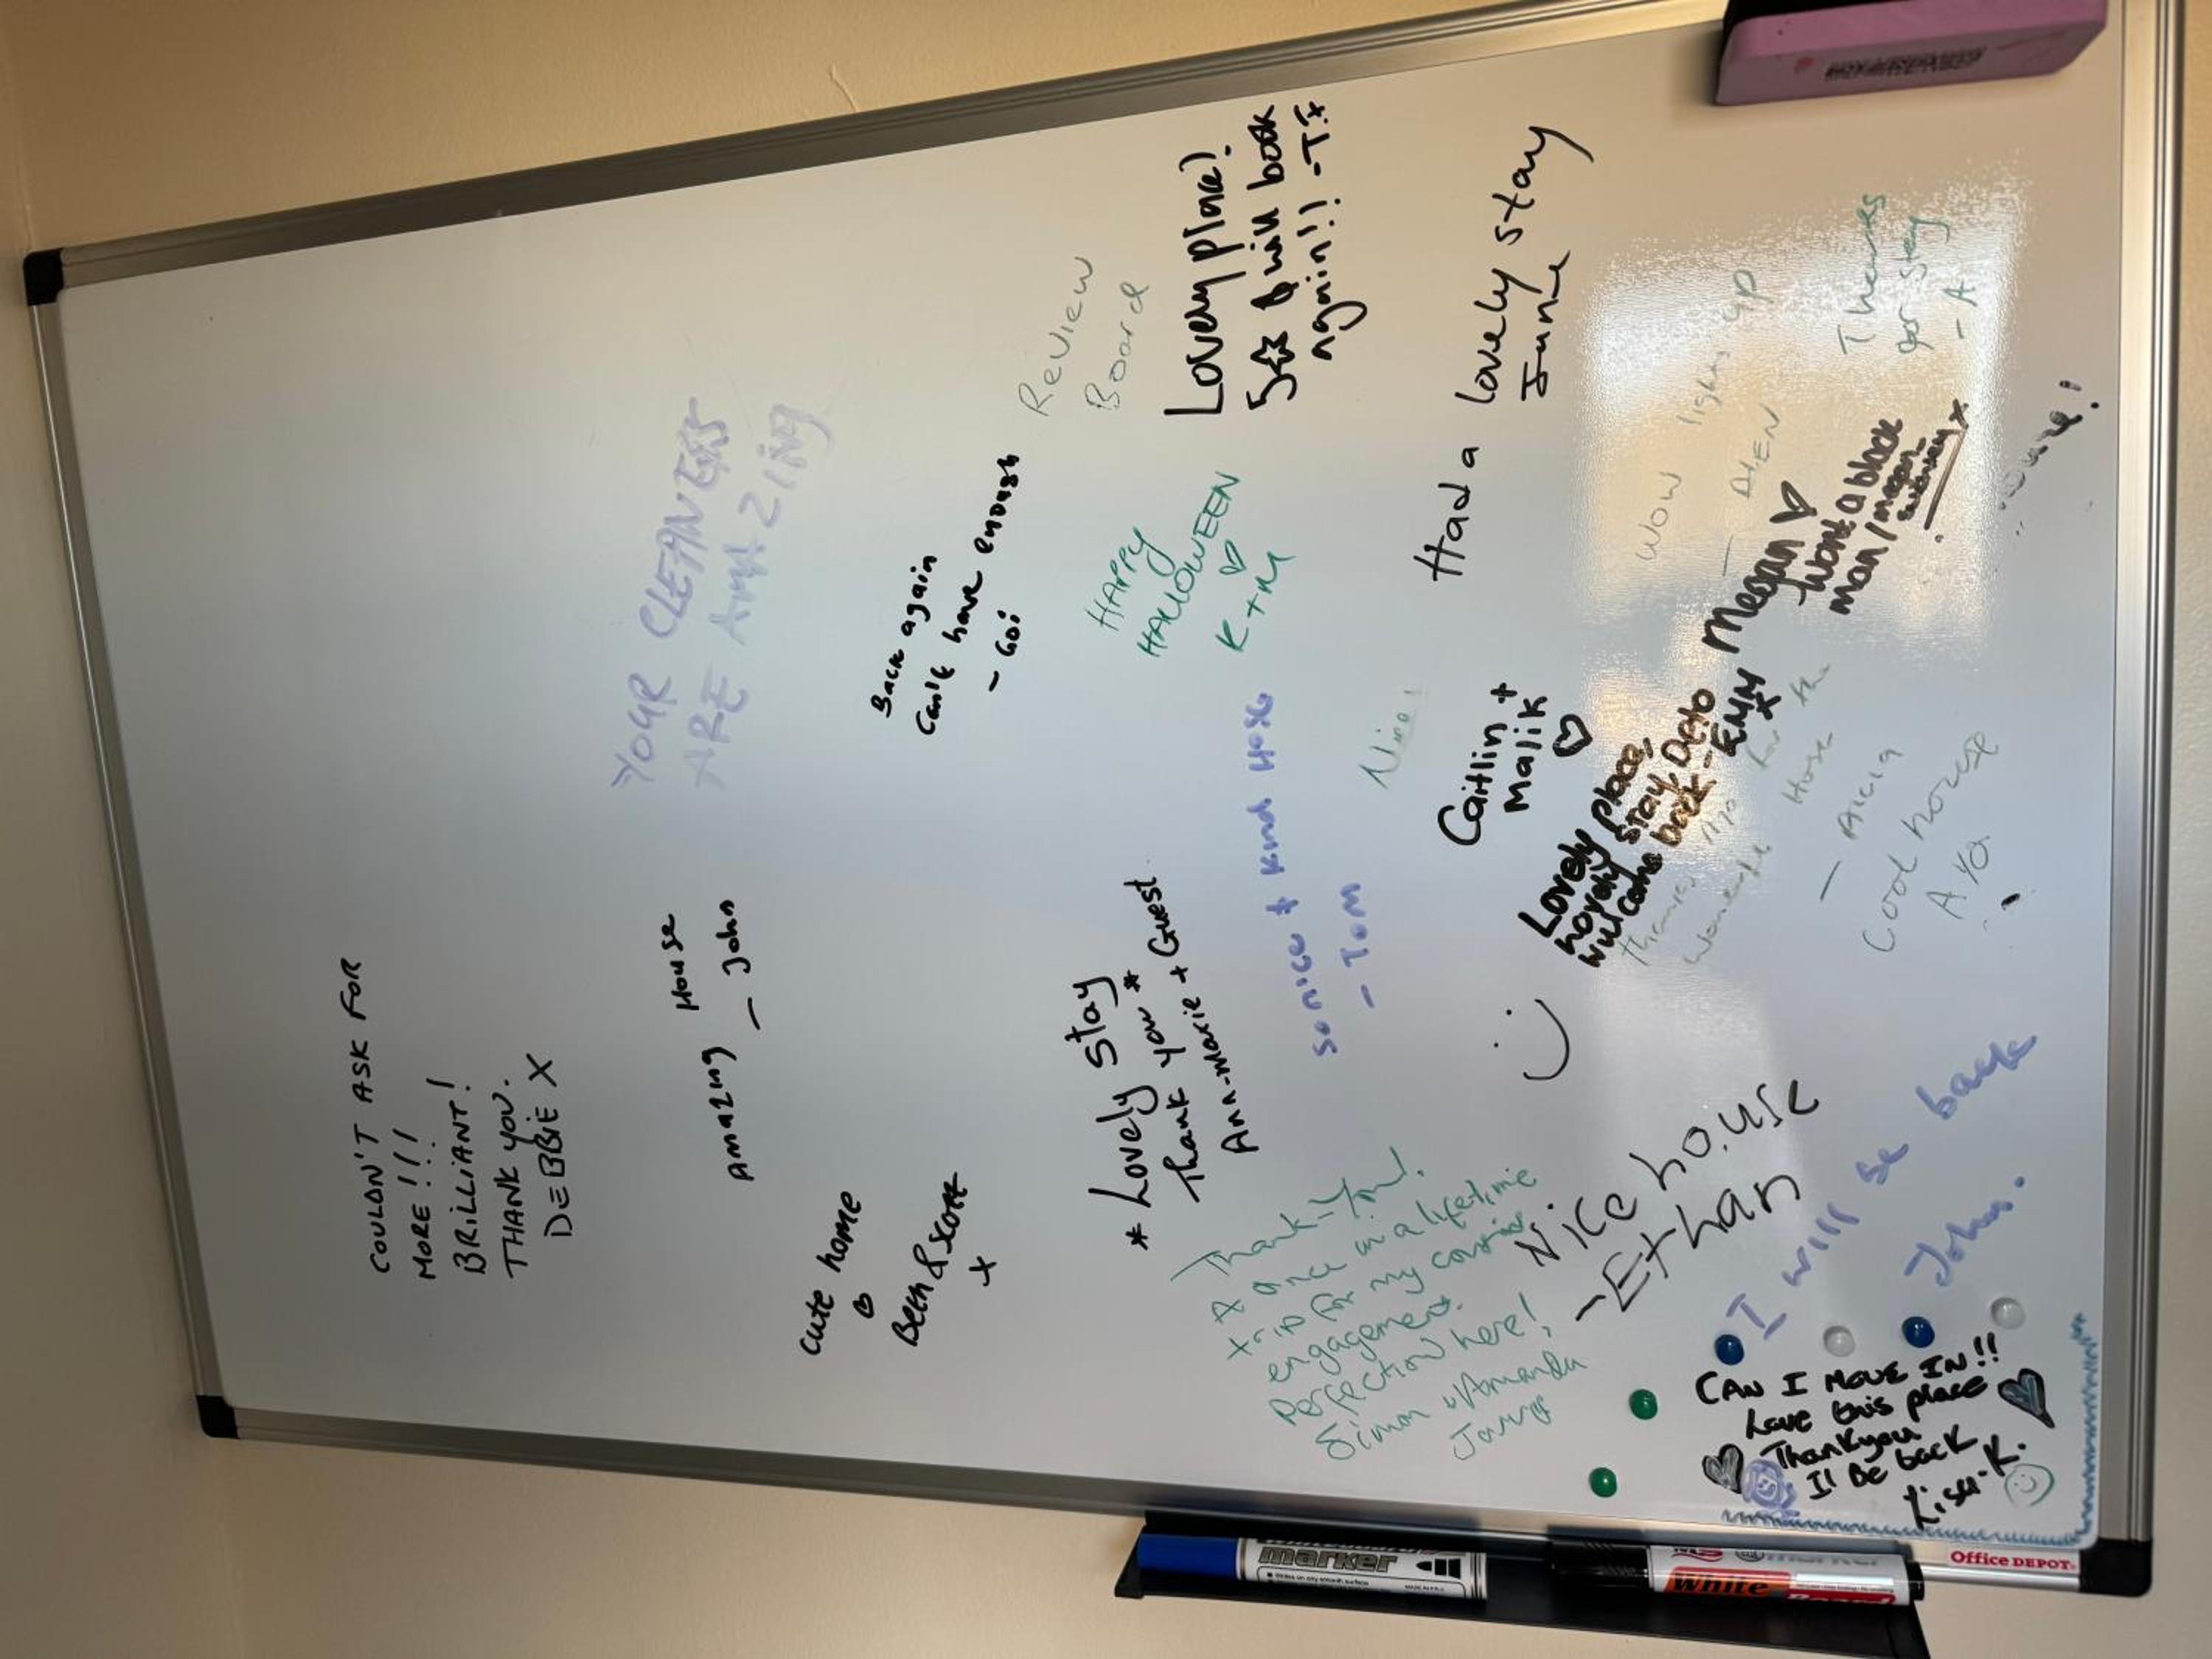 COULDN'T ASK FOR
MORE!!!
BRILLIANT!
THANK YOU.
DEBBIE X
YOUR CLEANERS
ARE AMAZING
Amazing House
- John
Back again
can't have enough
- Goi
cute home
Beth & Scott
x
Review
Board
Lovely place!
5☆ & will book
again!! - T.x
HAPPY
HALLOWEEN
♡
K + M
* Lovely stay
Thank you *
Ann-Marie + Guest
So nice & kind Host
- Tom
Nice!
Had a lovely stay
June
Thank-You!
A once in a lifetime
trip for my cousins
engagement.
Perfection here!
Simon & Amanda
Caitlin +
Malik
♡
Lovely place,
lovely stay Defo
will come back - EMM
x
Megan ♡
want a black
man /
Wow lights up
Thanks
for stay
- A
Thanks for the
House
- Alicia
Cool house
Ayo
Nice house
- Ethan
I will be back
John.
CAN I MOVE IN!!
Love this place
Thankyou
I'l be back
Lisa-K.
marker
White
Board
Office DEPOT